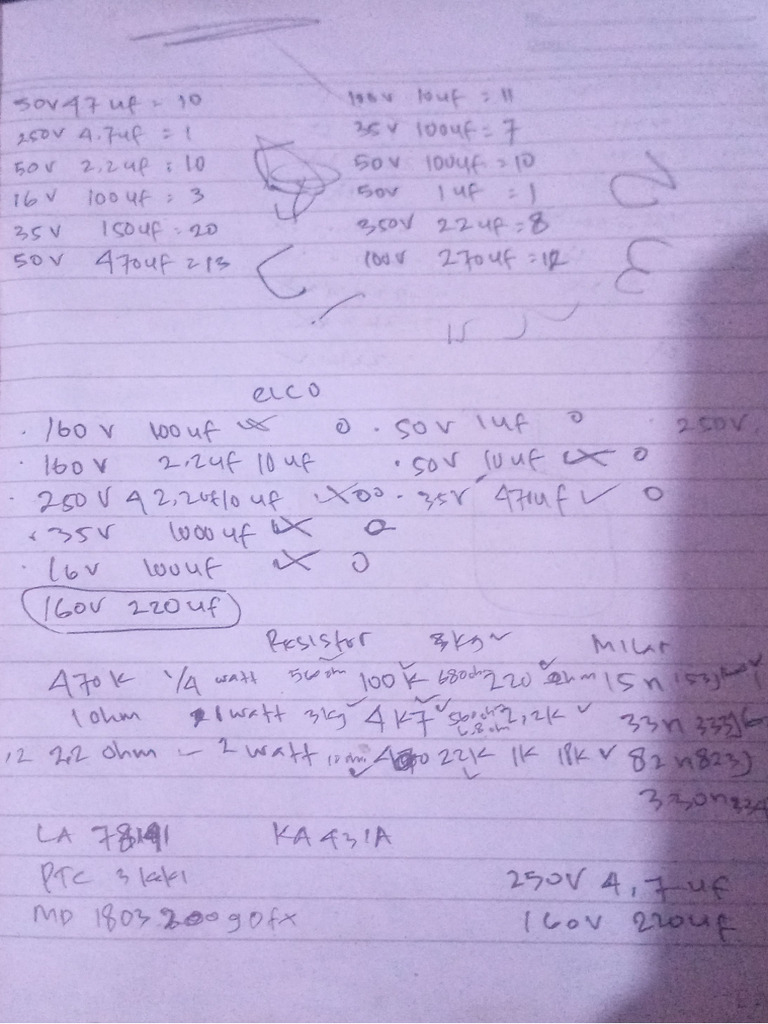 50V 47 uf = 10
250V 4.7uf = 1
50V 2.2uf = 10
16V 100uf = 3
35V 150uf = 20
50V 470uf = 13
100V 10uf = 11
35V 100uf = 7
50V 100uf = 10
50V 1uf = 1
350V 22uf = 8
100V 270uf = 12
elco
. 160V 100uf 0 . 50V 1uf 0 . 250V
. 160V 2.2uf 10uf . 50V 10uf 0
. 250V 4 2,2uf 10uf 00 . 35V 470uf ✓ 0
. 35V 1000uf 0
. 16V 100uf 0
160V 220uf
Resistor 3kg Milar
470K 1/4 watt 560ohm 100K 680ohm 220 ohm 15n 153J
1 ohm 1watt 3kg 4K7 560ohm 6.8ohm 2,2K 33n 333J
,12 22 ohm - 2 watt 22K 1K 18K ✓ 82n 823J
330n 334
LA KA431A
PTC 3 kaki 250V 4,7uf
MD 1803 fx 160V 220uf